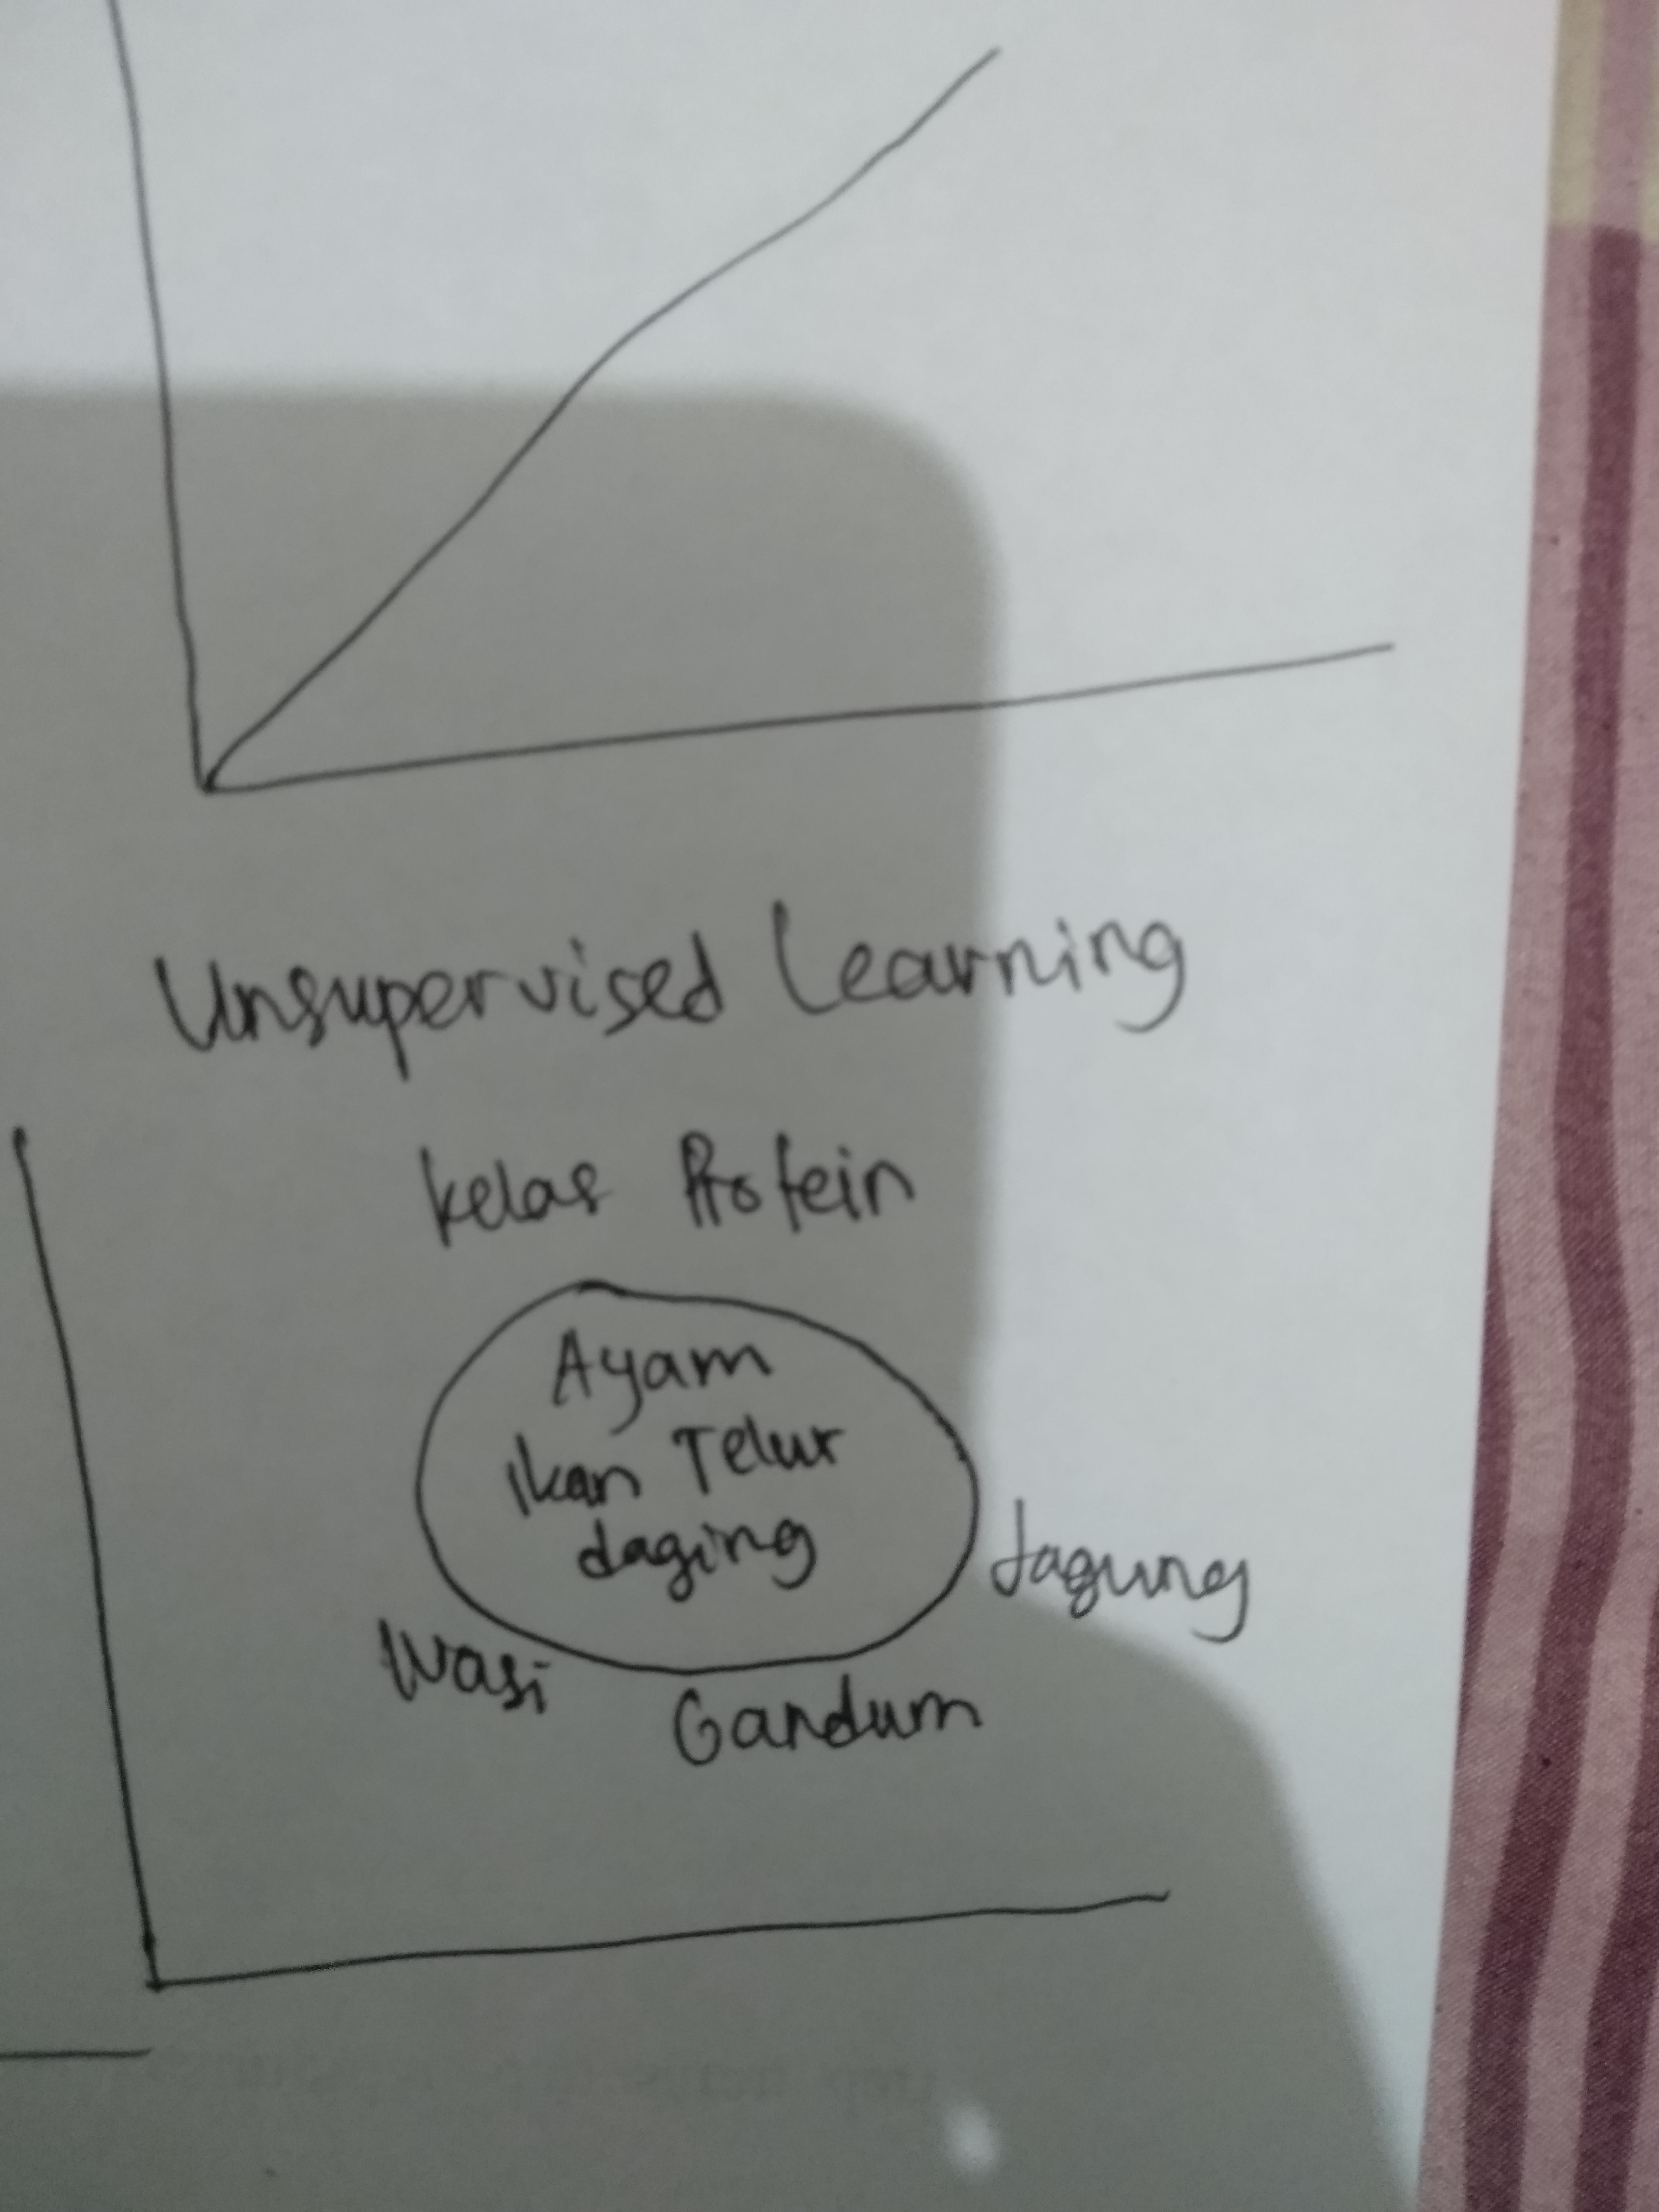 Unsupervised Learning
Kelas Protein
Ayam
Ikan Telur
daging
Jagung
Nasi
Gandum